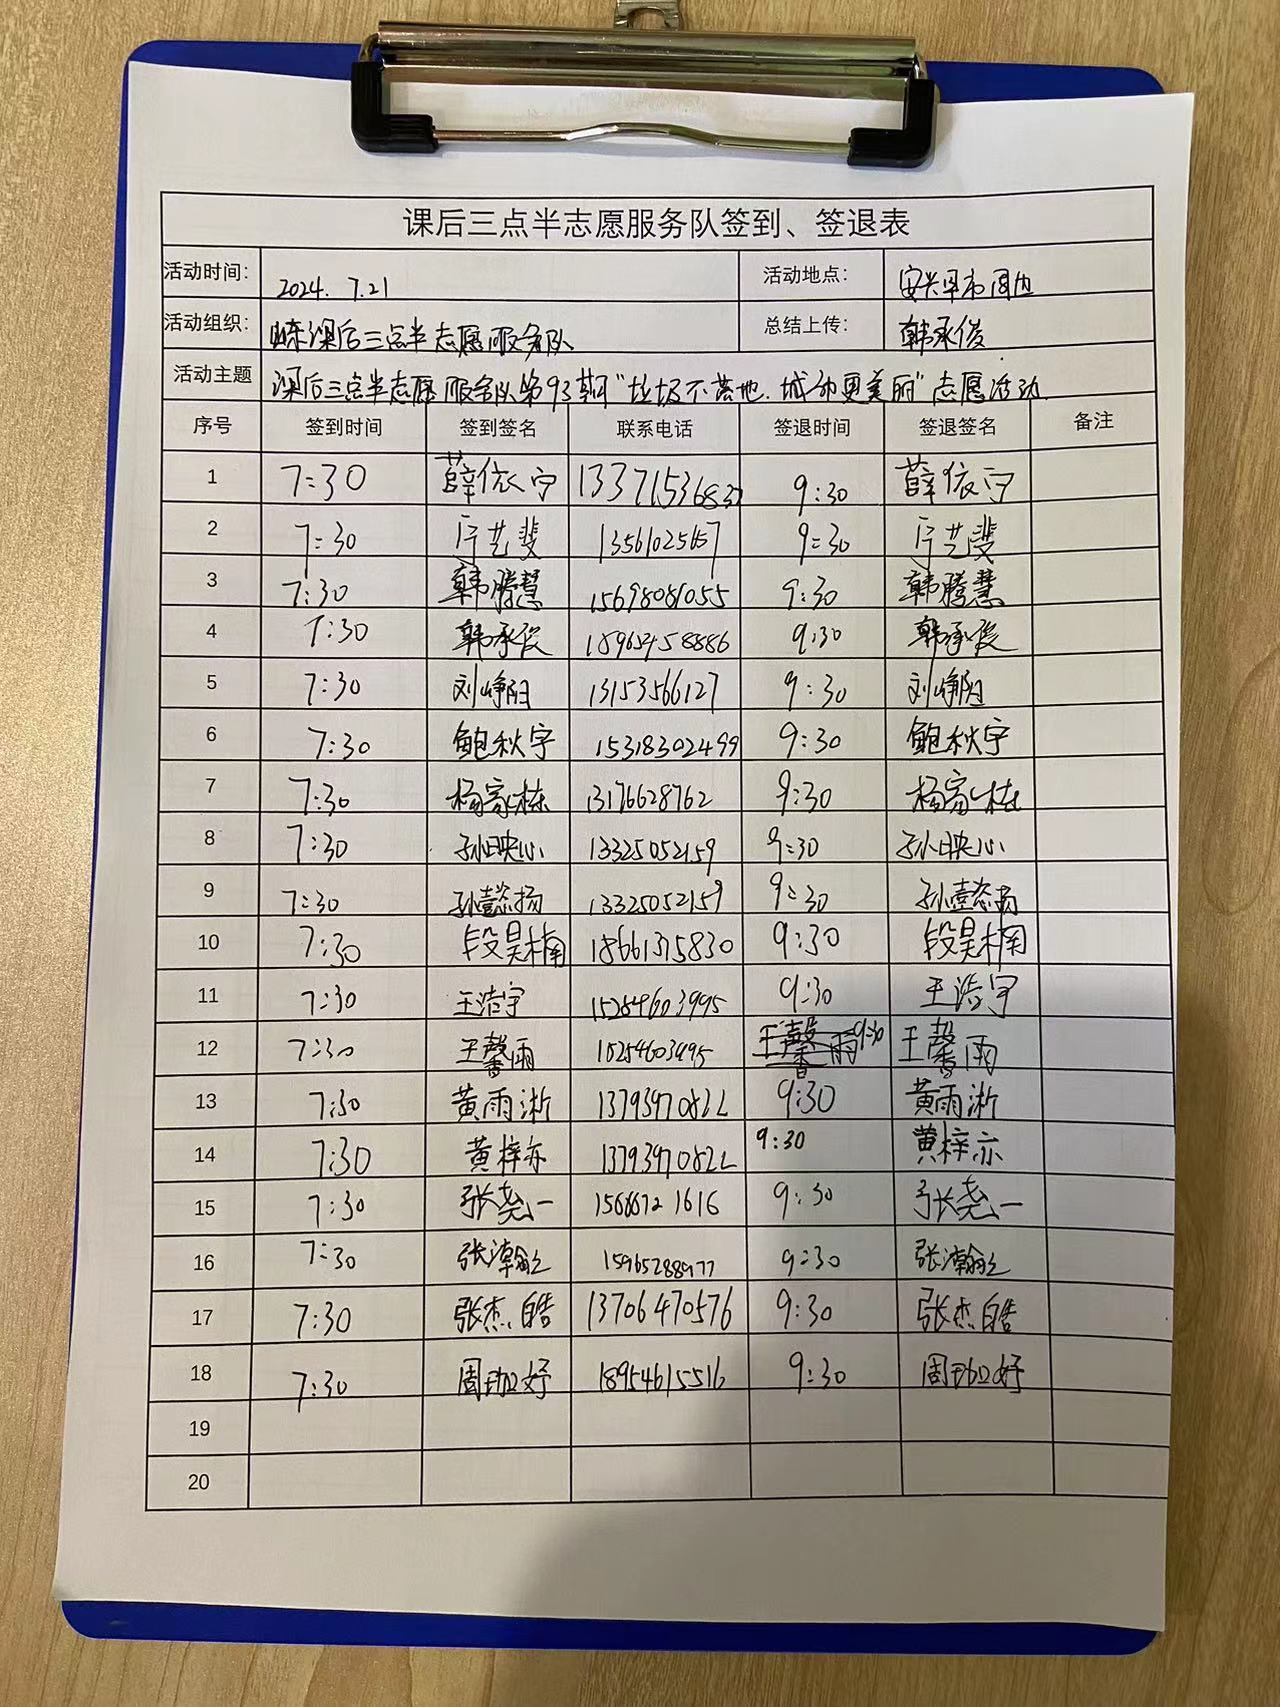 课后三点半志愿服务队签到、签退表
活动时间: 2024. 7.21 活动地点: 安兴早市周边
活动组织: 课后三点半志愿服务队 总结上传: 韩承俊
活动主题 课后三点半志愿服务队第93期“垃圾不落地.城市更美丽”志愿活动
序号 签到时间 签到签名 联系电话 签退时间 签退签名 备注
1 7:30 薛依宁 13371536837 9:30 薛依宁
2 7:30 艺斐 9:30 艺斐
3 7:30 韩腾慧 15698081055 9:30 韩腾慧
4 7:30 韩承俊 9:30 韩承俊
5 7:30 刘峥阳 13153566127 9:30 刘峥阳
6 7:30 鲍秋宇 15318302499 9:30 鲍秋宇
7 7:30 杨家栋 13176628762 9:30 杨家栋
8 7:30 孙映心 13325052159 9:30 孙映心
9 7:30 孙懿扬 13325052159 9:30 孙懿扬
10 7:30 段昊楠 18661375830 9:30 段昊楠
11 7:30 王浩宇 9:30 王浩宇
12 7:30 王馨雨 王馨雨 9:30 王馨雨
13 7:30 黄雨淅 13793970822 9:30 黄雨淅
14 7:30 黄梓亦 13793970822 9:30 黄梓亦
15 7:30 张尧一 9:30 张尧一
16 7:30 张瀚之 15965288977 9:30 张瀚之
17 7:30 张杰皓 13706470576 9:30 张杰皓
18 7:30 周珈妤 18954615516 9:30 周珈妤
19
20